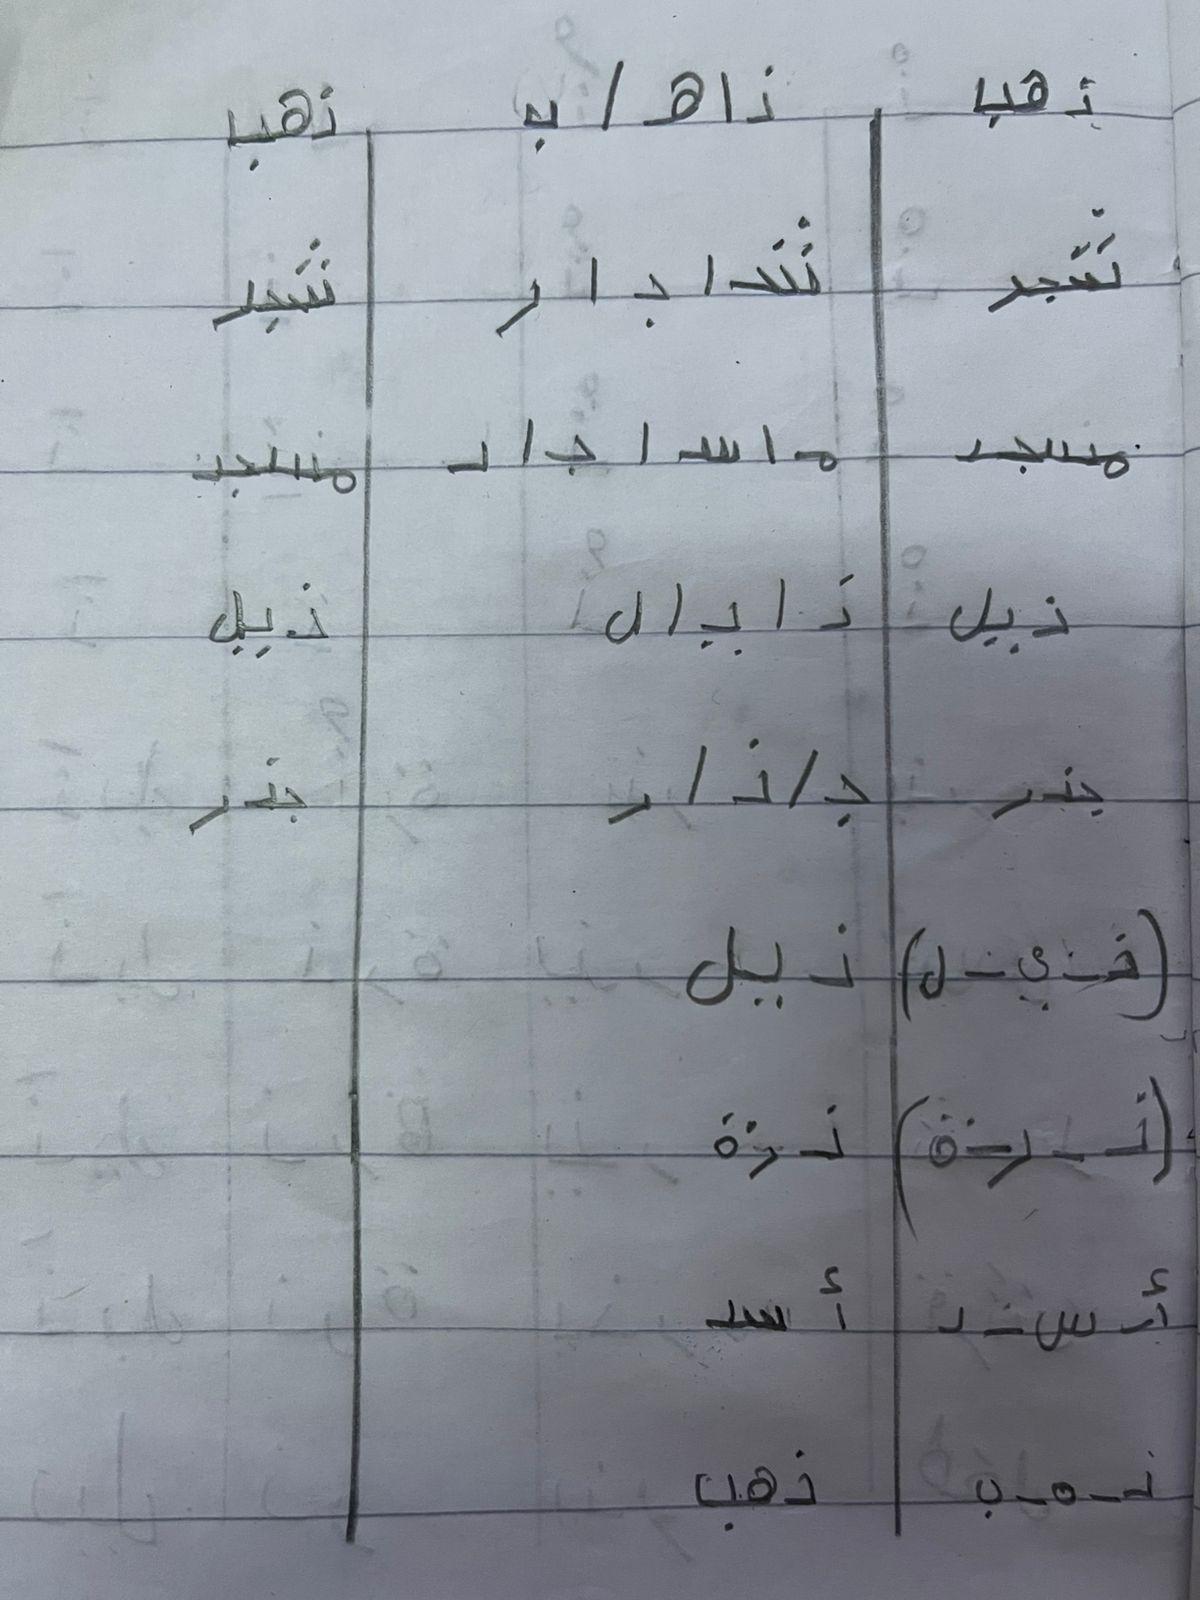 ذهب ذ ا هـ / ب ذهب
شجر شـ ا جـ ا ر شجر
مسجد مـ ا سـ ا جـ ا د مسجد
ذبيل ذ ا بـ ا ل ذييل
جذر جـ / ذ / ر جذر
(ذ - ي - ل) ذ يـيل
(ذ - ر - ة) ذرة
أ - س - د أسد
ذ - ه - ب ذهب